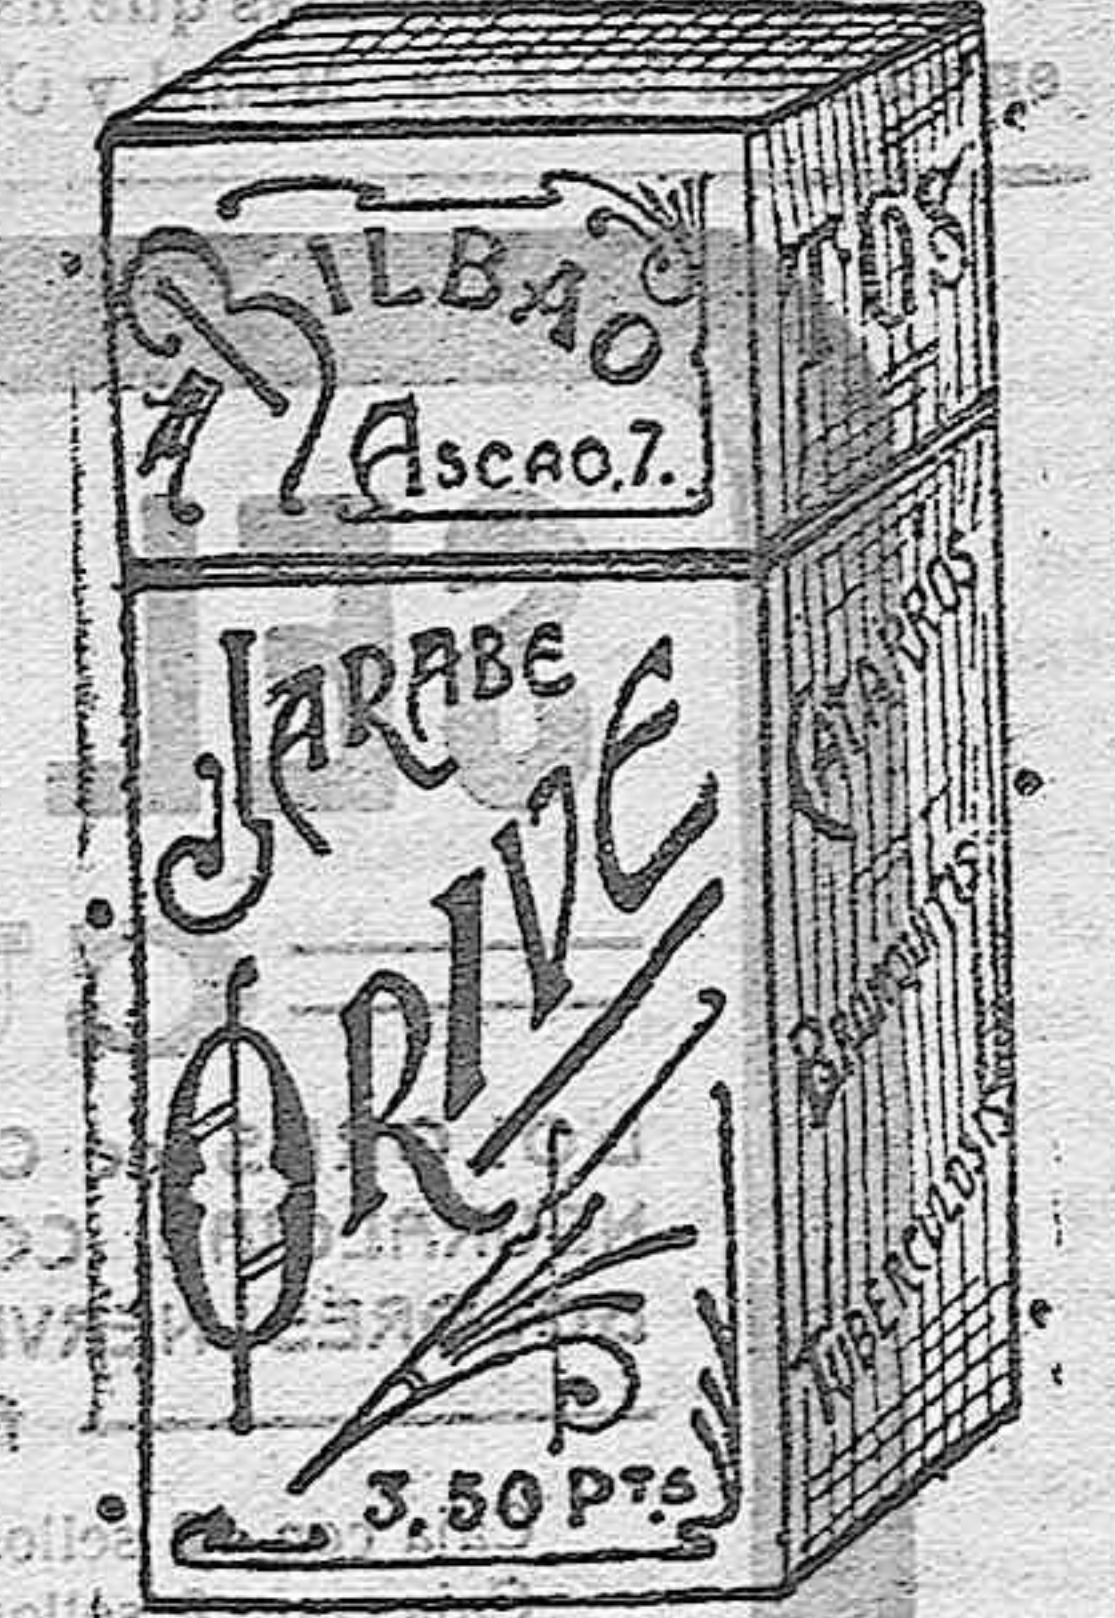 A BILBAO
ASCAO, 7.
JARABE
ORIVE
3,50 PTS
TOS
CATARROS
BRONQUITIS
TUBERCULOSIS